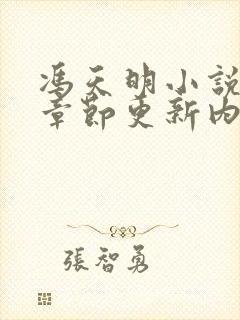 馮天明小說
章節更新內
張智勇